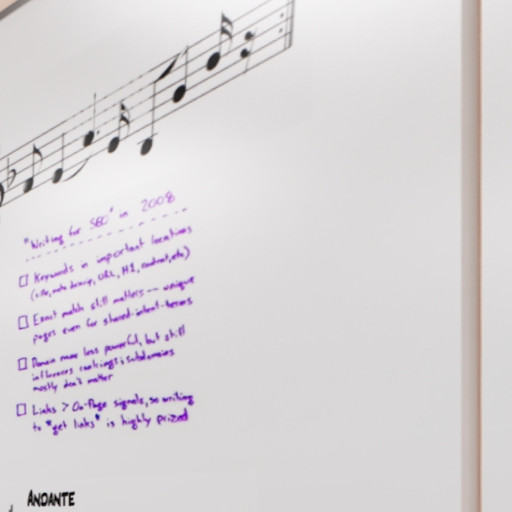 "Writing for SEO" in 2008
☐ Keywords in important locations
(title, meta descrip, URL, H1, content, etc)
☐ Exact match still matters -- unique
pages even for shared-intent-terms
☐ Domain name less powerful, but still
influences rankings; subdomains
mostly don't matter
☐ Links > On-Page signals, so writing
to "get links" is highly prized
ANDANTE